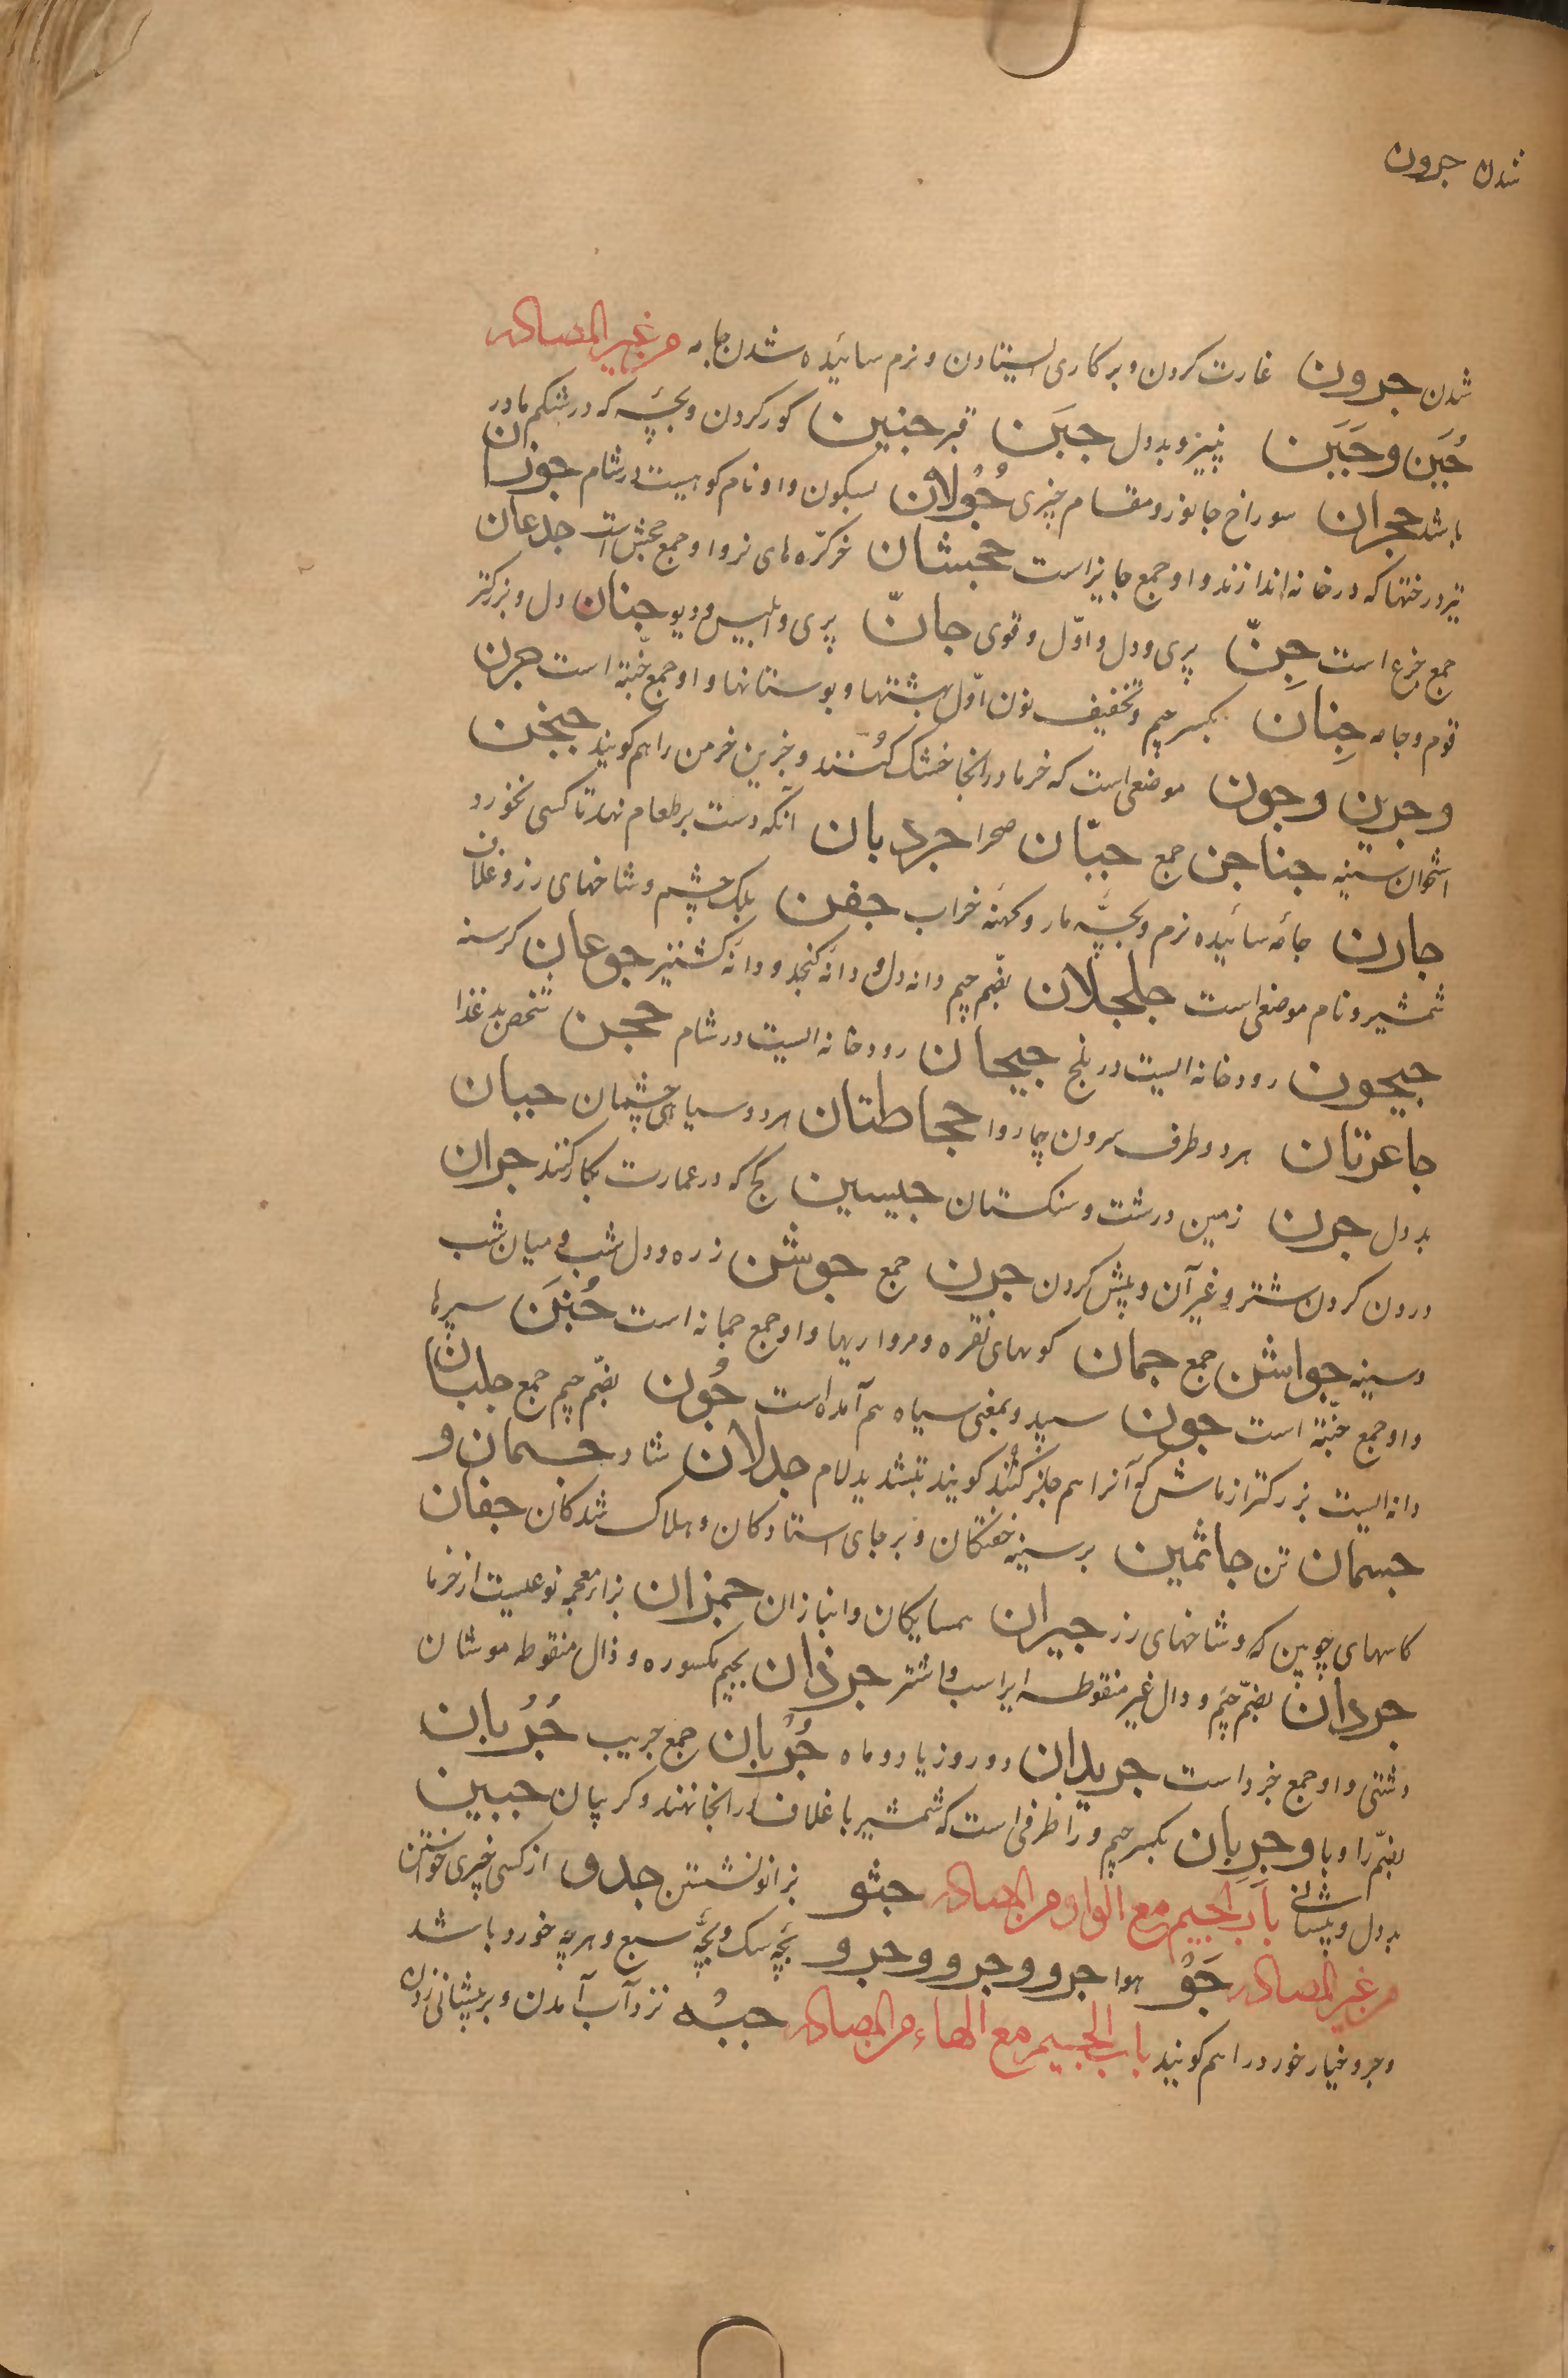 شدن جرون
شدن جرون غارت کردن و بر کاری ایستادن و نرم سائیده شدن جامه من غیر المصادر
جُبَن و جَبَین پنیر و بددل جبَن قبر جنین کور کردن و بچّه که در شکم مادر
باشد حجران سوراخ جانور و مقام چیزی جُولان بسکون واو نام کوهیست در شام جوزان
تیر درختها که در خانه اندازند و او جمع جایز است جحشان خر کرّه های نر و او جمع جحش است جذعان
جمع جذع است جِنّ پری و دل و اوّل و قوی جانّ پری و ابلیس و دیو جنان دل و بزرکتر
قوم و جامه جِنان بکسر جیم و تخفیف نون اوّل بهشتها و بوستانها و او جمع جنّة است جرن
و جرین و جون موضعی است که خرما در آنجا خشک کنند و جرین خرمن را هم کویند جنجن
استخوان سینه جناجن جمع جبّان صحرا جردبان آنکه دست بر طعام نهد تا کسی نخورد
جارن جامۀ سائیده نرم و بچّۀ مار و کهنه خراب جفن پلک چشم و شاخهای رز و غلاف
شمشیر و نام موضعی است جلجلان بضّم جیم دانه دل و دانۀ کنجد و دانۀ کشنیز جوعان کرسنه
جیحون رودخانه ایست در بلخ جیحان رودخانه ایست در شام جحن شخص بد غذا
جاعرتان هر دو طرف سرون چاروا جحاظتان هر دو سیاهی چشمان جبان
بد دل جرن زمین درشت و سنکستان جبسین کچ که در عمارت بکار کنند جران
درون کردن شتر و غیر آن و پیش کردن جرن جمع جوشن زره و دل شب و میان شب
و سینه جواشن جمع جمان کوهای نقره و مرواریها و او جمع جمانه است جُنَن سپرها
و او جمع جنّة است جون سپید و بمعنی سیاه هم آمده است جُون بضّم جیم جمع جلبان
دانه ایست بزرکتر از ماش که آنرا هم کویند بتشدید لام جدلان شاد جسمان و
جسمان تن جاثمین بر سینه خفتکان و بر جای استادکان و هلاک شدکان جفان
کاسهای چوبین که و شاخهای رز جیران همسایکان و انبازان جمزان بزاء معجمه نوعیست از خرما
جردان بضّم جیم و دال غیر منقوطه ایر اسب و اشتر جرذان بجیم مکسوره و ذال منقوطه موشان
دشتی و او جمع جرد است جریدان دو روز یا دو ماه جُرُبان جمع جریب جُرُبان
بضّم را و با و جِرِبان بکسر جیم و را ظرفی است که شمشیر با غلاف در آنجا نهند و کریبان جبین
بد دل و پیشانی باب الجیم مع الواو من المصادر جثو بزانو نشستن جدو از کسی چیزی خواستن
من غیر المصادر جَوّ هوا جرو و جرو و جرو بچّه سک و بچّه سبع و هر چه خورد باشد
و جرو خیار خورد را هم کویند باب الجیم مع الهاء من المصادر جبه نزد آب آمدن و بر پیشانی زدن